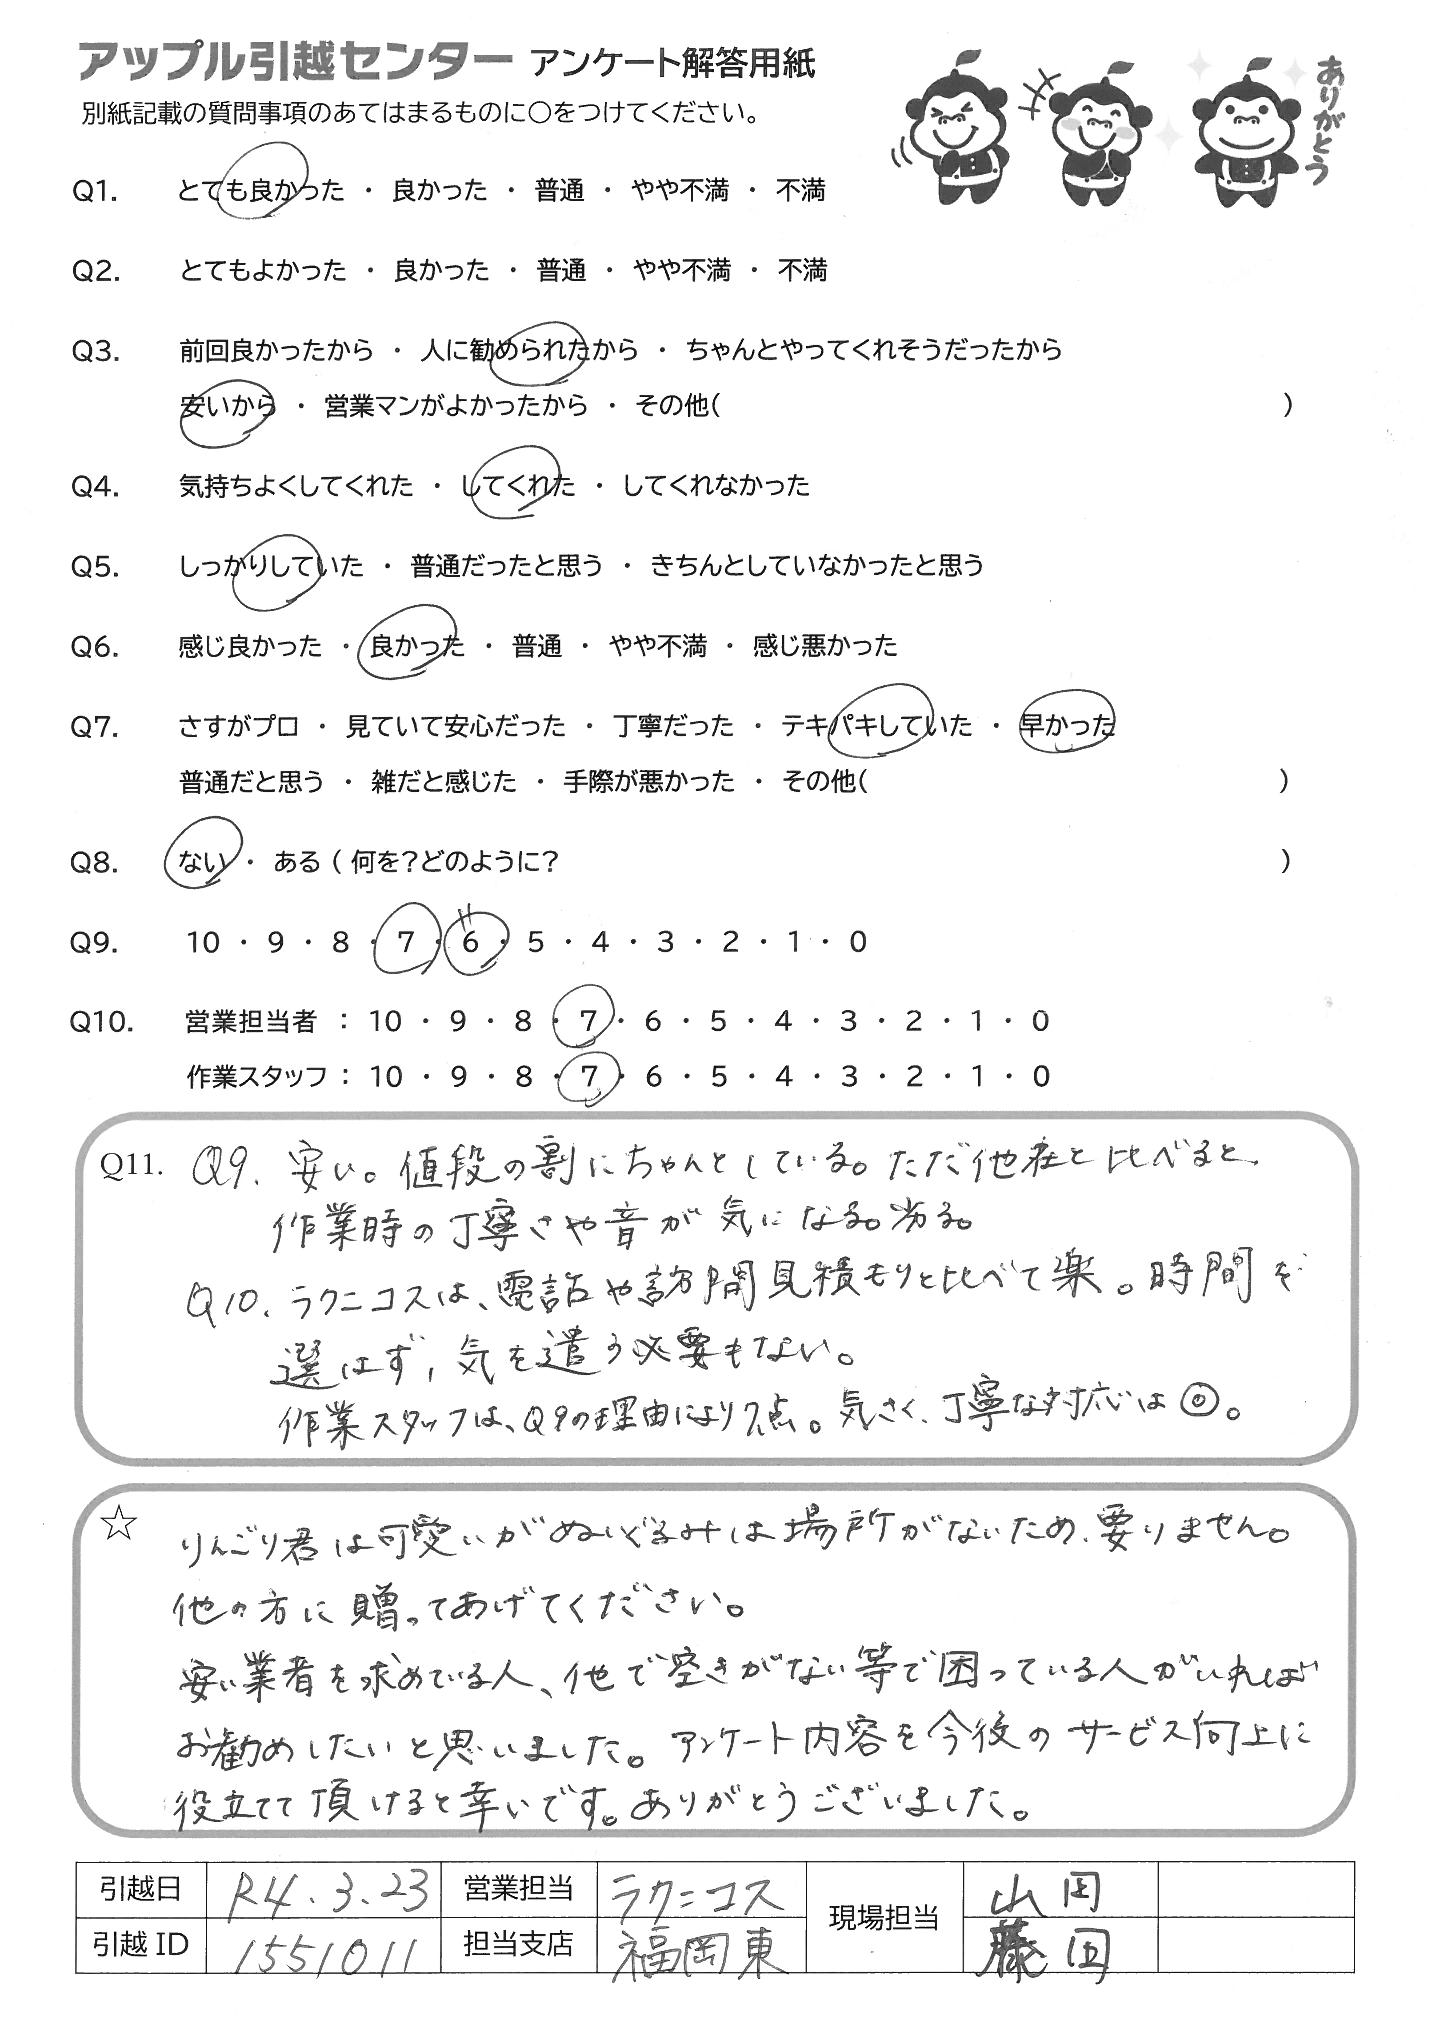 アップル引越センター アンケート解答用紙
ありがとう
別紙記載の質問事項のあてはまるものに〇をつけてください。
Q1. とても良かった ・ 良かった ・ 普通 ・ やや不満 ・ 不満
Q2. とてもよかった ・ 良かった ・ 普通 ・ やや不満 ・ 不満
Q3. 前回良かったから ・ 人に勧められたから ・ ちゃんとやってくれそうだったから
安いから ・ 営業マンがよかったから ・ その他( )
Q4. 気持ちよくしてくれた ・ してくれた ・ してくれなかった
Q5. しっかりしていた ・ 普通だったと思う ・ きちんとしていなかったと思う
Q6. 感じ良かった ・ 良かった ・ 普通 ・ やや不満 ・ 感じ悪かった
Q7. さすがプロ ・ 見ていて安心だった ・ 丁寧だった ・ テキパキしていた ・ 早かった
普通だと思う ・ 雑だと感じた ・ 手際が悪かった ・ その他( )
Q8. ない ・ ある ( 何を?どのように? )
Q9. 10 ・ 9 ・ 8 ・ 7 ・ 6 ・ 5 ・ 4 ・ 3 ・ 2 ・ 1 ・ 0
Q10. 営業担当者 : 10 ・ 9 ・ 8 ・ 7 ・ 6 ・ 5 ・ 4 ・ 3 ・ 2 ・ 1 ・ 0
作業スタッフ : 10 ・ 9 ・ 8 ・ 7 ・ 6 ・ 5 ・ 4 ・ 3 ・ 2 ・ 1 ・ 0
Q11. Q9. 安い。値段の割にちゃんとしている。ただ他社と比べると、
作業時の丁寧さや音が気になる。劣る。
Q10. ラクニコスは、電話や訪問見積もりと比べて楽。時間を
選ばず、気を遣う必要もない。
作業スタッフは、Q9の理由により7点。気さく、丁寧な対応は◎。
☆ りんごり君は可愛いがぬいぐるみは場所がないため、要りません。
他の方に贈ってあげてください。
安い業者を求めている人、他で空きがない等で困っている人がいれば
お勧めしたいと思いました。アンケート内容を今後のサービス向上に
役立てて頂けると幸いです。ありがとうございました。
引越日 R4.3.23 営業担当 ラクニコス 現場担当 山田
引越ID 1551011 担当支店 福岡東 藤田